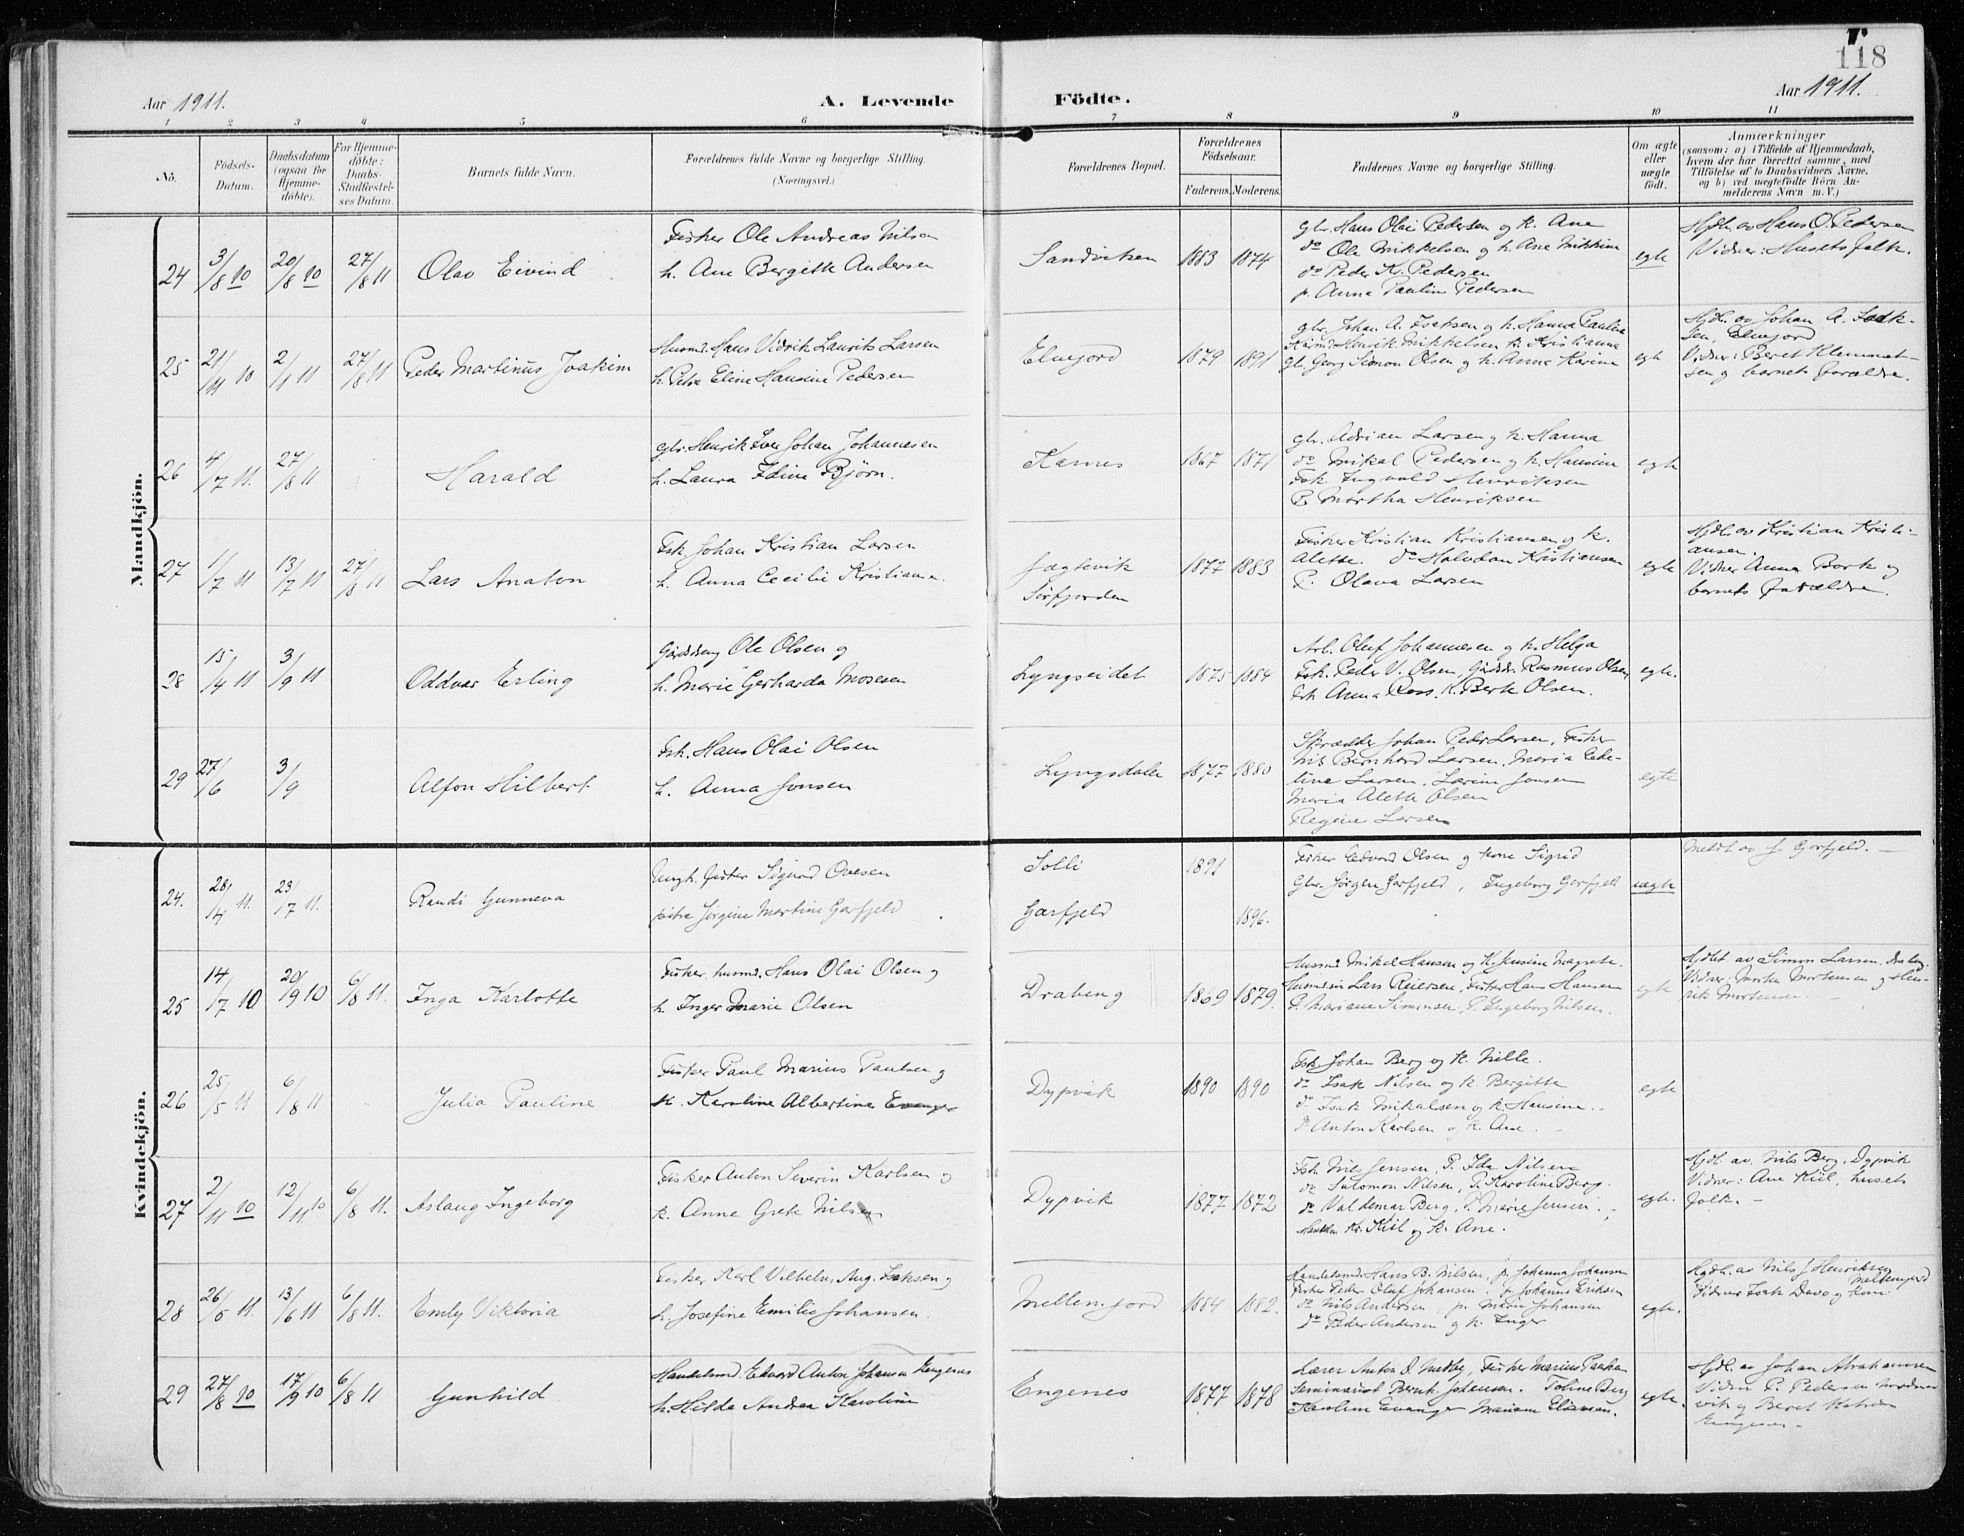 118
Aar 1911.
A. Levende Födte.
Aar 1911.
1 2 3 4 5 6 7 8 9 10 11
No.
Födsels-Datum.
Daabsdatum (ogsaa for Hjemmedöbte).
For Hjemmedöbte: Daabs-Stadfæstelses Datum.
Barnets fulde Navn.
Forældrenes fulde Navne og borgerlige Stilling.
(Næringsvei.)
Forældrenes Bopæl.
Forældrenes Födselsaar.
Faderens. Moderens.
Faddernes Navne og borgerlige Stilling.
Om ægte eller uægte födt.
Anmærkninger
(saasom: a) i Tilfælde af Hjemmedaab, hvem der har forrettet samme, med Tilföielse af to Daabsvidners Navne. og b) ved uægtefödte Börn Anmelderens Navn m. V.)
Mandkjön.
24 3/8 10 20/8 10 27/8 11 Olav Eivind
Fisker Ole Andreas Nilsen
h. Ane Bergitte Andersen
Sandviksen 1883 1874
gbr. Hans Olai Pedersen og k. Ane
do Ole Mikkelsen og h. Ane Mikkine
do Peder K. Pedersen
p. Anna Paulin Pedersen
egte
Hjdl. av Hans O. Pedersen
Vidner: Husets folk.
25 21/11 10 2/1 11 27/8 11 Peder Martinus Joakim
Husmd. Hans Vidrik Laurits Larsen
h. Petra Eline Hansine Pedersen
Elvejord 1879 1891
gbr. Johan A. Isaksen og h. Hanna Paulina
Henrik Mikkelsen k. Kristianna
gbr. Georg Simon Olsen og h. Anna Karine
egt
Hjdl. av Johan A. Isaksen, Elvejord
Vidner: Beret Klemmetsen og barnets forældre.
26 4/7 11. 27/8 11 Harald
gbr. Henrik Iver Johan Johannesen
h. Laura Edine Bjørn.
Karnes 1867 1871
gbr. Adrian Larsen og k. Hanna
do Mikal Pedersen og h. Hansine
Fsk. Ingvald Henriksen
P. Martha Henriksen
egte
27 1/7 11 13/7 11 27/8 11 Lars Anaton
Fsk. Johan Kristian Larsen
h. Anna Cecilie Kristiansen
Jægtevik
Sørfjorden
1877 1883
Fisker Kristian Kristiansen og k.
Alette. do Halvdan Kristiansen
P. Olava Larsen
egte
Hjdl. av Kristian Kristiansen.
Vidner Anna Bork og
barnets forældre.
28 15/4 11 3/9 11 Oddvar Erling
Ole Olsen og
h. Marie Gerharda Mosesen
Lyngseidet 1875 1884
Arb. Oluf Johannesen og h. Helga
Fsk. Peder V. Olsen, Rasmus Olsen,
Fsk. Anna Ross. K. Berte Olsen.
egte.
29 27/6 3/9 Alfon Hilbert
Fsk. Hans Olai Olsen
h. Anna Jonsen
Lyngsdalen 1877 1880
Skrædder Johan Peder Larsen, Fisker
Nils Bernhard Larsen, Maria Edeline Larsen, Larine Jonsen
Maria Alette Olsen
Regine Larsen
egte
Kvindekjön.
24. 28/4 11. 23/7 11. Randi Gunneva
Ungk. fisker Sigurd Ovesen
pike Jørgine Martine Garfjeld
Solli 1891
Garfjeld 1896.
Fisker Edvard Olsen og kone Sigrid
Gbr. Jörgen Garfjeld, Ingeborg Garfjeld
uegte
Meldt av J. Garfjeld.
25 14/7 10 20/9 10 6/8 11. Inga Karlotte
Fisker husmd. Hans Olai Olsen og
h. Inger Marie Olsen
Drabeng 1869 1879.
Husmd. Mikal Hansen og K. Jensine Magrete.
Husmd. Lars Reiersen, Fisker Hans Hansen
P. Mariane Simonsen, P. Ingeborg Nilsen.
egte
Hjdbt av Simon Larsen, Drabeng
Vidner: Morten Mortensen og Henrik Mortensen.
26 25/5 11 6/8 11 Julia Pauline
Fisker Paul Marius Paulsen og
k. Karoline Albertine Evanger
Dypvik 1890 1890
Fsk. Johan Berg og K. Nille.
do Isak Nilsen og k. Bergitte
do Isak Mikalsen og k. Hansine.
do Anton Karlsen og k. Ane.
egte
27 2/11 10 12/11 10 6/8 11. Aslaug Ingeborg
Fisker Anton Severin Karlsen og
k. Anne Grete Nilsen
Dypvik 1877 1872
Fsk. Nils Jensen, P. Ida Nilsen
do Salomon Nilsen, P. Karoline Berg.
do Valdemar Berg, P. Marie Jensen.
Kr. Kiil og k. Ane.
egte.
Hjdl. av. Nils Berg, Dypvik
Vidner: Ane Kiil, husets
folk.
28 26/5 11. 13/6 11 6/8 11. Emly Viktoria
Fisker Karl Vilhelm Aug. Isaksen og
h. Josefine Emilie Johansen.
Mellemjord 1884 1882.
Handelsmd. Hans B. Nilsen, p. Johanna Johansen
Fisker Peder Oluf Johansen, p. Johanne Eriksen
do Nils Andersen p. Marie Johansen
do Peder Andersen og k. Inger
egte.
Hjdb. av Nils J Henriksen
Mellemjord
Vidner Isak Davo og kone.
29 27/8 10 17/9 10 6/8 11 Gunhild
Handelsmd. Edvard Anton Johansen Engenes
h. Hilda Andrea Karoline
Engenes 1877 1878
Lærer Anton O. Medby, Fisker Marius Paulsen
Seminarist Bernh. Johansen. Toline Berg
Karoline Evanger
egte.
Hjdl. av Johan Abrahamsen
Vidner P. Pedersen Nordmervik og Beret
Engenes